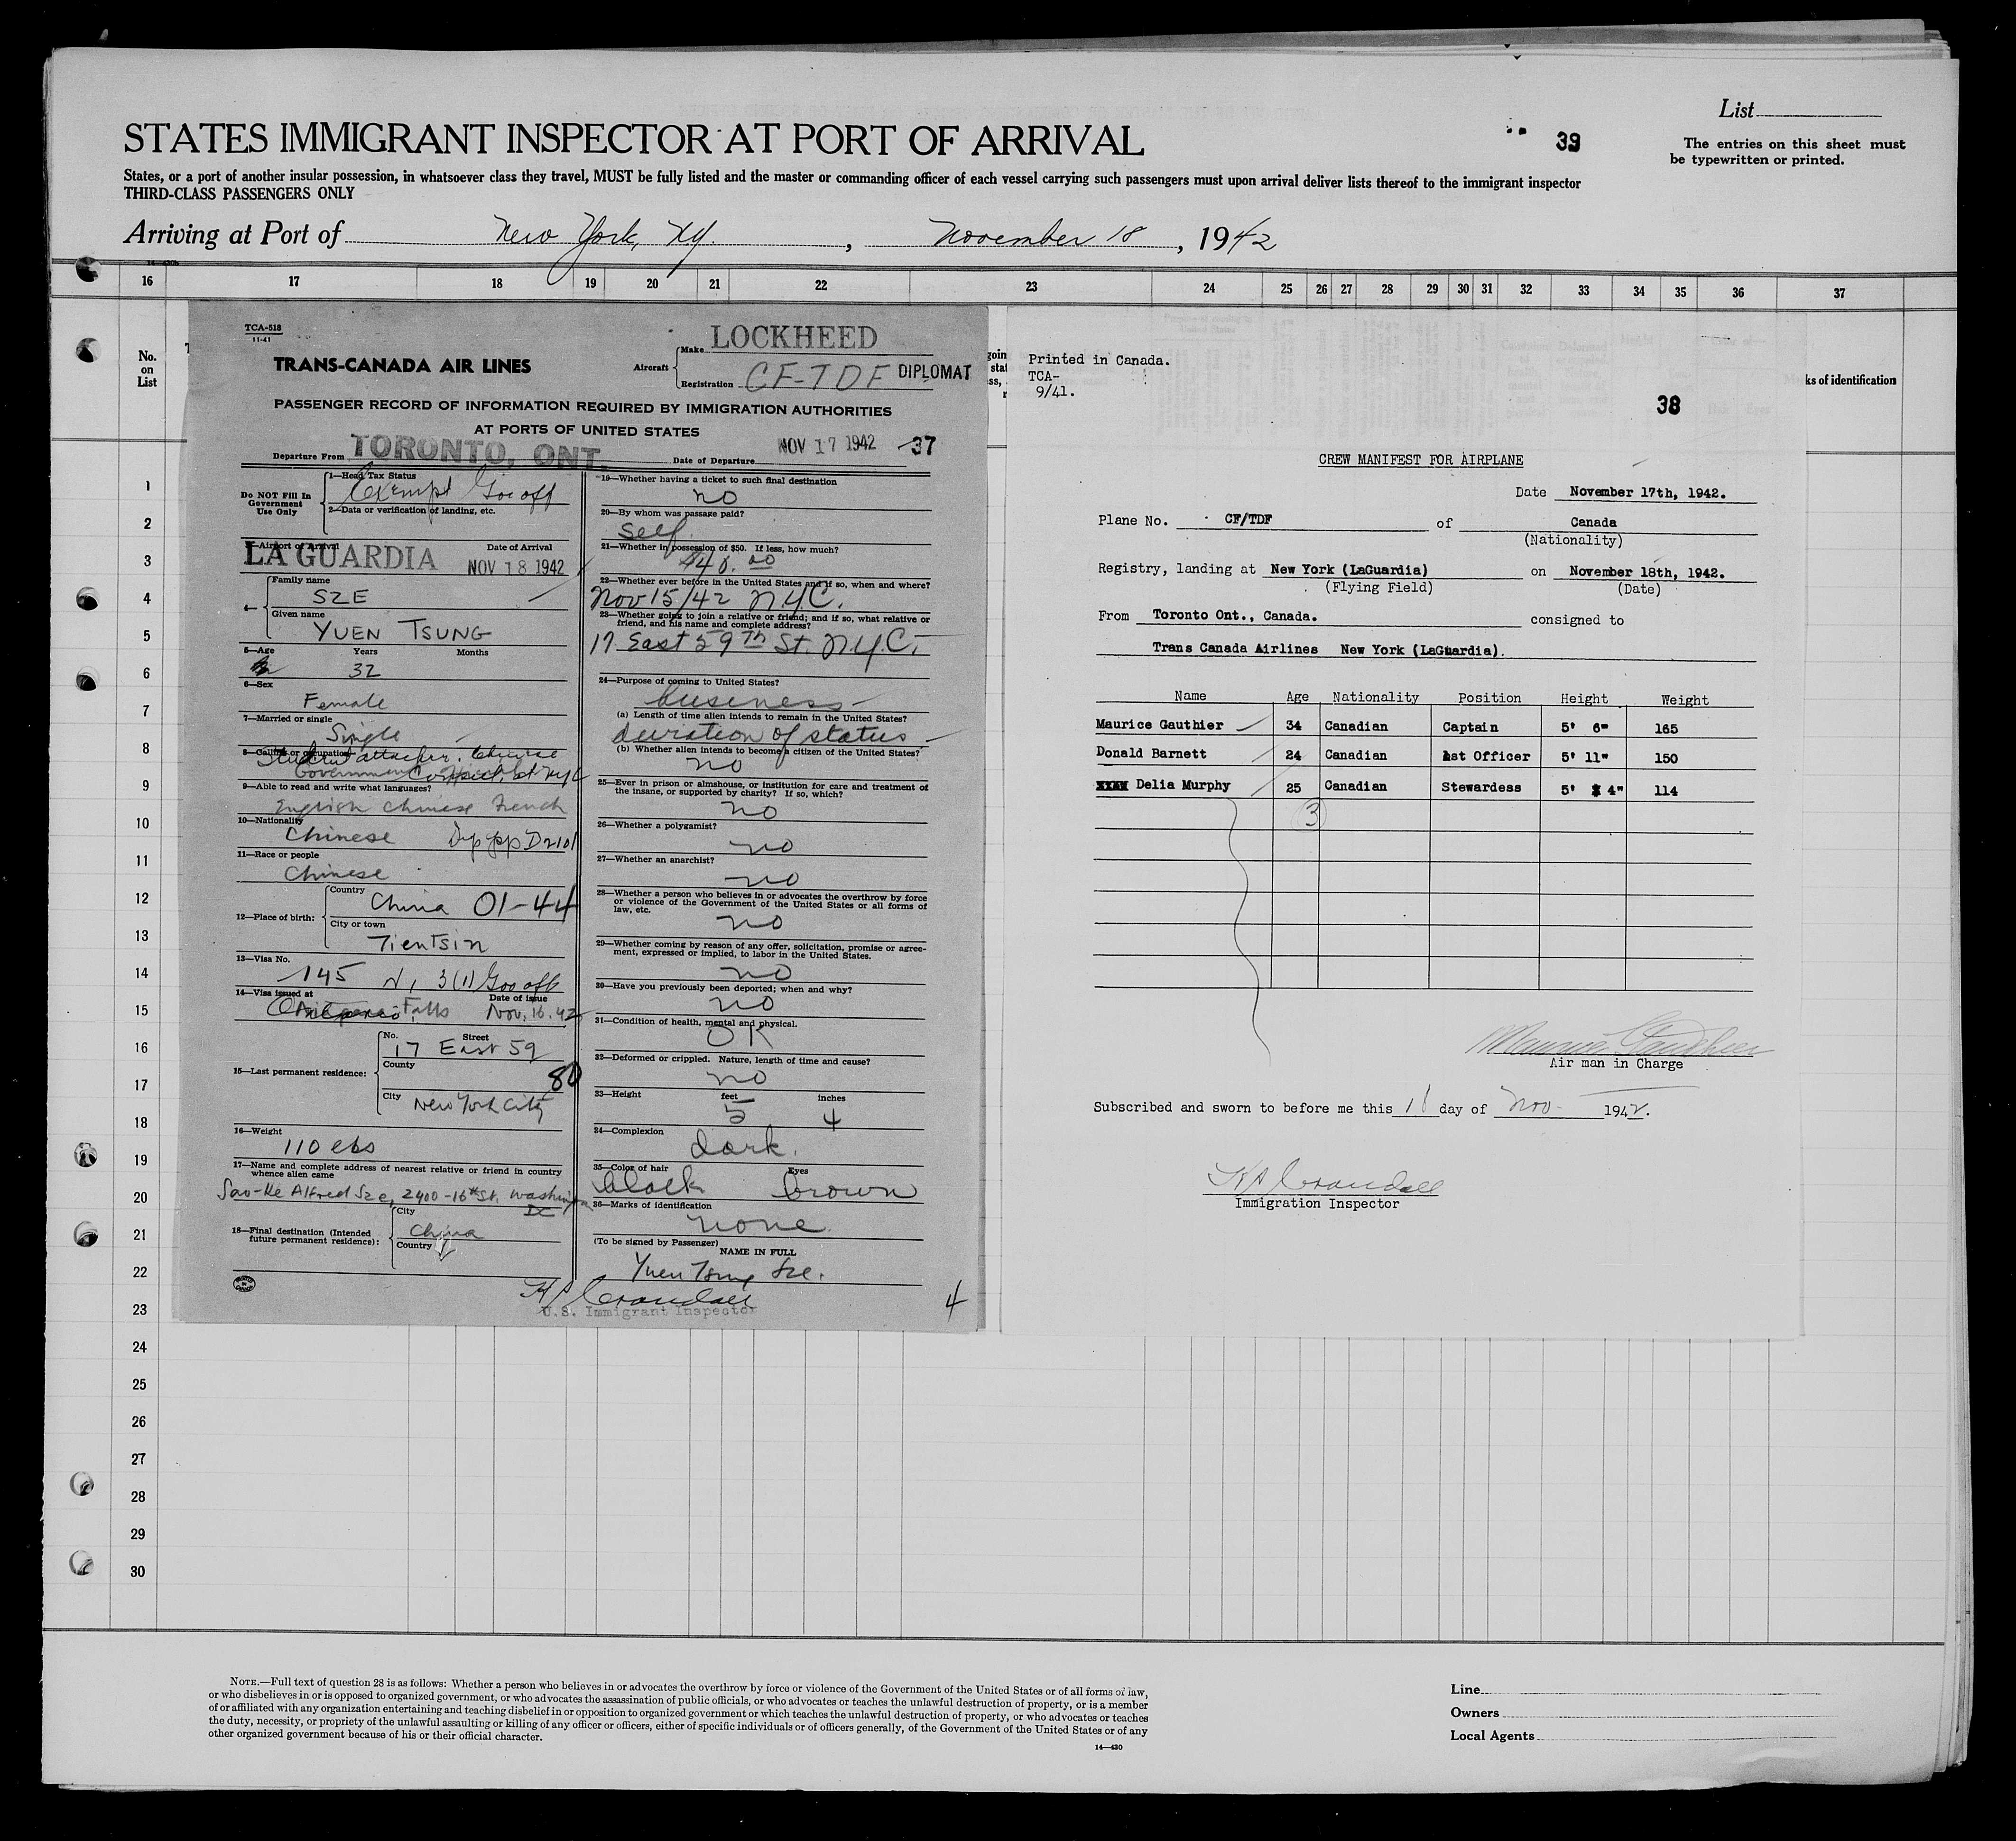 List
STATES IMMIGRANT INSPECTOR AT PORT OF ARRIVAL
39
The entries on this sheet must
be typewritten or printed.
States, or a port of another insular possession, in whatsoever class they travel, MUST be fully listed and the master or commanding officer of each vessel carrying such passengers must upon arrival deliver lists thereof to the immigrant inspector
THIRD-CLASS PASSENGERS ONLY
Arriving at Port of New York, NY. , November 18 , 1942
16 17 18 19 20 21 22 23 24 25 26 27 28 29 30 31 32 33 34 35 36 37
No.
on
List
ks of identification
1
2
3
4
5
6
7
8
9
10
11
12
13
14
15
16
17
18
19
20
21
22
23
24
25
26
27
28
29
30
TCA-518
11-41
TRANS-CANADA AIR LINES
Aircraft
Make LOCKHEED
Registration CF-TDF DIPLOMAT
PASSENGER RECORD OF INFORMATION REQUIRED BY IMMIGRATION AUTHORITIES
AT PORTS OF UNITED STATES
Departure From TORONTO, ONT. Date of Departure NOV 17 1942 37
Do NOT Fill In
Government
Use Only
1—Head Tax Status
Exempt Gov off
2—Data or verification of landing, etc.
3—Airport of Arrival Date of Arrival
LA GUARDIA NOV 18 1942
4—
Family name
SZE
Given name
YUEN TSUNG
5—Age Years Months
32
6—Sex
Female
7—Married or single
Single
8—Calling or occupation
attache, Chinese
Government Consulate, NYC
9—Able to read and write what languages?
English Chinese French
10—Nationality
Chinese Dip pp D2101
11—Race or people
Chinese
12—Place of birth:
Country
China 01-44
City or town
Tientsin
13—Visa No.
145 3(1) Gov off
14—Visa issued at Date of issue
Niagara Falls Nov. 16. 42
15—Last permanent residence:
No. Street
17 East 59
County
80
City New York City
16—Weight
110 lbs
17—Name and complete address of nearest relative or friend in country
whence alien came
Sao-Ke Alfred Sze, 2400-16th St. Washington
DC
18—Final destination (Intended
future permanent residence):
City
China
Country
19—Whether having a ticket to such final destination
no
20—By whom was passage paid?
self.
21—Whether in possession of $50. If less, how much?
$40.00
22—Whether ever before in the United States and if so, when and where?
Nov 15/42 N.Y.C.
23—Whether going to join a relative or friend; and if so, what relative or
friend, and his name and complete address?
17 East 59th St. N.Y.C.
24—Purpose of coming to United States?
business
(a) Length of time alien intends to remain in the United States?
duration of status
(b) Whether alien intends to become a citizen of the United States?
no
25—Ever in prison or almshouse, or institution for care and treatment of
the insane, or supported by charity? If so, which?
no
26—Whether a polygamist?
no
27—Whether an anarchist?
no
28—Whether a person who believes in or advocates the overthrow by force
or violence of the Government of the United States or all forms of
law, etc.
no
29—Whether coming by reason of any offer, solicitation, promise or agree-
ment, expressed or implied, to labor in the United States.
no
30—Have you previously been deported; when and why?
no
31—Condition of health, mental and physical.
OK
32—Deformed or crippled. Nature, length of time and cause?
no
33—Height feet inches
5 4
34—Complexion
dark.
35—Color of hair Eyes
black brown
36—Marks of identification
none
(To be signed by Passenger)
NAME IN FULL
Yuen Tsung Sze.
Crandall
U.S. Immigrant Inspector
4
Printed in Canada.
TCA-
9/41.
38
CREW MANIFEST FOR AIRPLANE
Date November 17th, 1942.
Plane No. CF/TDF of Canada
(Nationality)
Registry, landing at New York (LaGuardia) on November 18th, 1942.
(Flying Field) (Date)
From Toronto Ont., Canada. consigned to
Trans Canada Airlines New York (LaGuardia).
Name Age Nationality Position Height Weight
Maurice Gauthier 34 Canadian Captain 5' 6" 165
Donald Barnett 24 Canadian 1st Officer 5' 11" 150
Delia Murphy 25 Canadian Stewardess 5' 4" 114
3
Maurice Gauthier
Air man in Charge
Subscribed and sworn to before me this 18 day of Nov 1942.
Crandall
Immigration Inspector
NOTE.—Full text of question 28 is as follows: Whether a person who believes in or advocates the overthrow by force or violence of the Government of the United States or of all forms of law,
or who disbelieves in or is opposed to organized government, or who advocates the assassination of public officials, or who advocates or teaches the unlawful destruction of property, or is a member
of or affiliated with any organization entertaining and teaching disbelief in or opposition to organized government or which teaches the unlawful destruction of property, or who advocates or teaches
the duty, necessity, or propriety of the unlawful assaulting or killing of any officer or officers, either of specific individuals or of officers generally, of the Government of the United States or of any
other organized government because of his or their official character.
14—430
Line
Owners
Local Agents